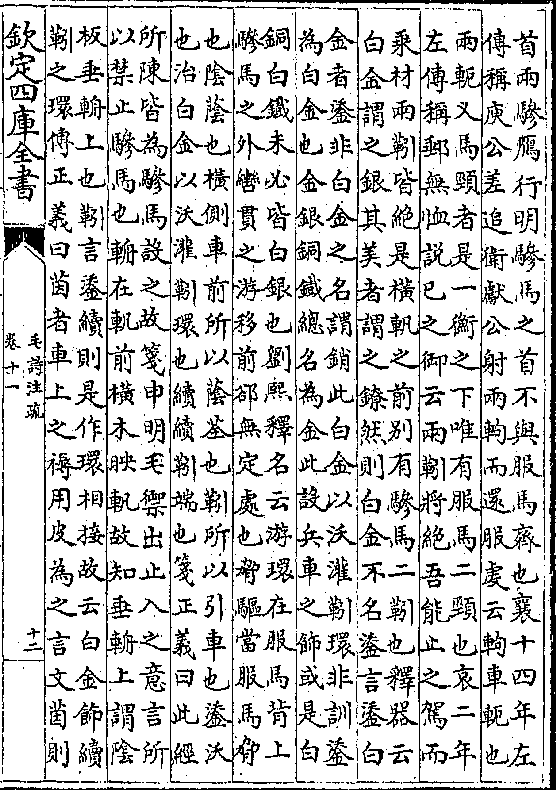 首兩驂鴈行明驂馬之首不與服馬齊也襄十四年左
傳稱庾公差追衛獻公射兩軥而還服虔云軥車軛也
兩軛又馬頸者是一衡之下唯有服馬二頸也哀二年
左傳稱郵無恤說已之御云兩靷將絕吾能止之駕而
乘材兩靷皆絕是橫軌之前別有驂馬二靷也釋器云
白金謂之銀其美者謂之鐐然則白金不名鋈言鋈白
金者鋈非白金之名謂銷此白金以沃灌靷環非訓鋈
為白金也金銀銅鐵總名為金此設兵車之飾或是白
銅白鐵未必皆白銀也劉熙釋名云游環在服馬背上
驂馬之外轡貫之游移前郤無定處也脅驅當服馬脅
也陰蔭也橫側車前所以蔭荃也靷所以引車也鋈沃
也治白金以沃灌靷環也續續靷端也箋正義曰此經
所陳皆為驂馬設之故箋申明毛禦出止入之意言所
以禁止驂馬也輈在軌前橫木映軌故知垂輈上謂陰
板垂輈上也靷言鋈續則是作環相接故云白金飾續
靷之環傳正義曰茵者車上之褥用皮為之言文茵則
欽定四庫全書
毛詩注疏
卷十一
十二